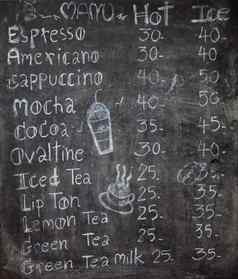 MANU Hot Ice
Espresso 30- 40-
Americano 30- 40-
Cappuccino 40- 50-
Mocha 40- 50-
Cocoa 35- 45-
Ovaltine 30- 40-
Iced Tea 25. 35-
Lip Ton 25. 35-
Lemon Tea 25. 35-
Green Tea 25. 35.
Green Tea milk 25. 35.